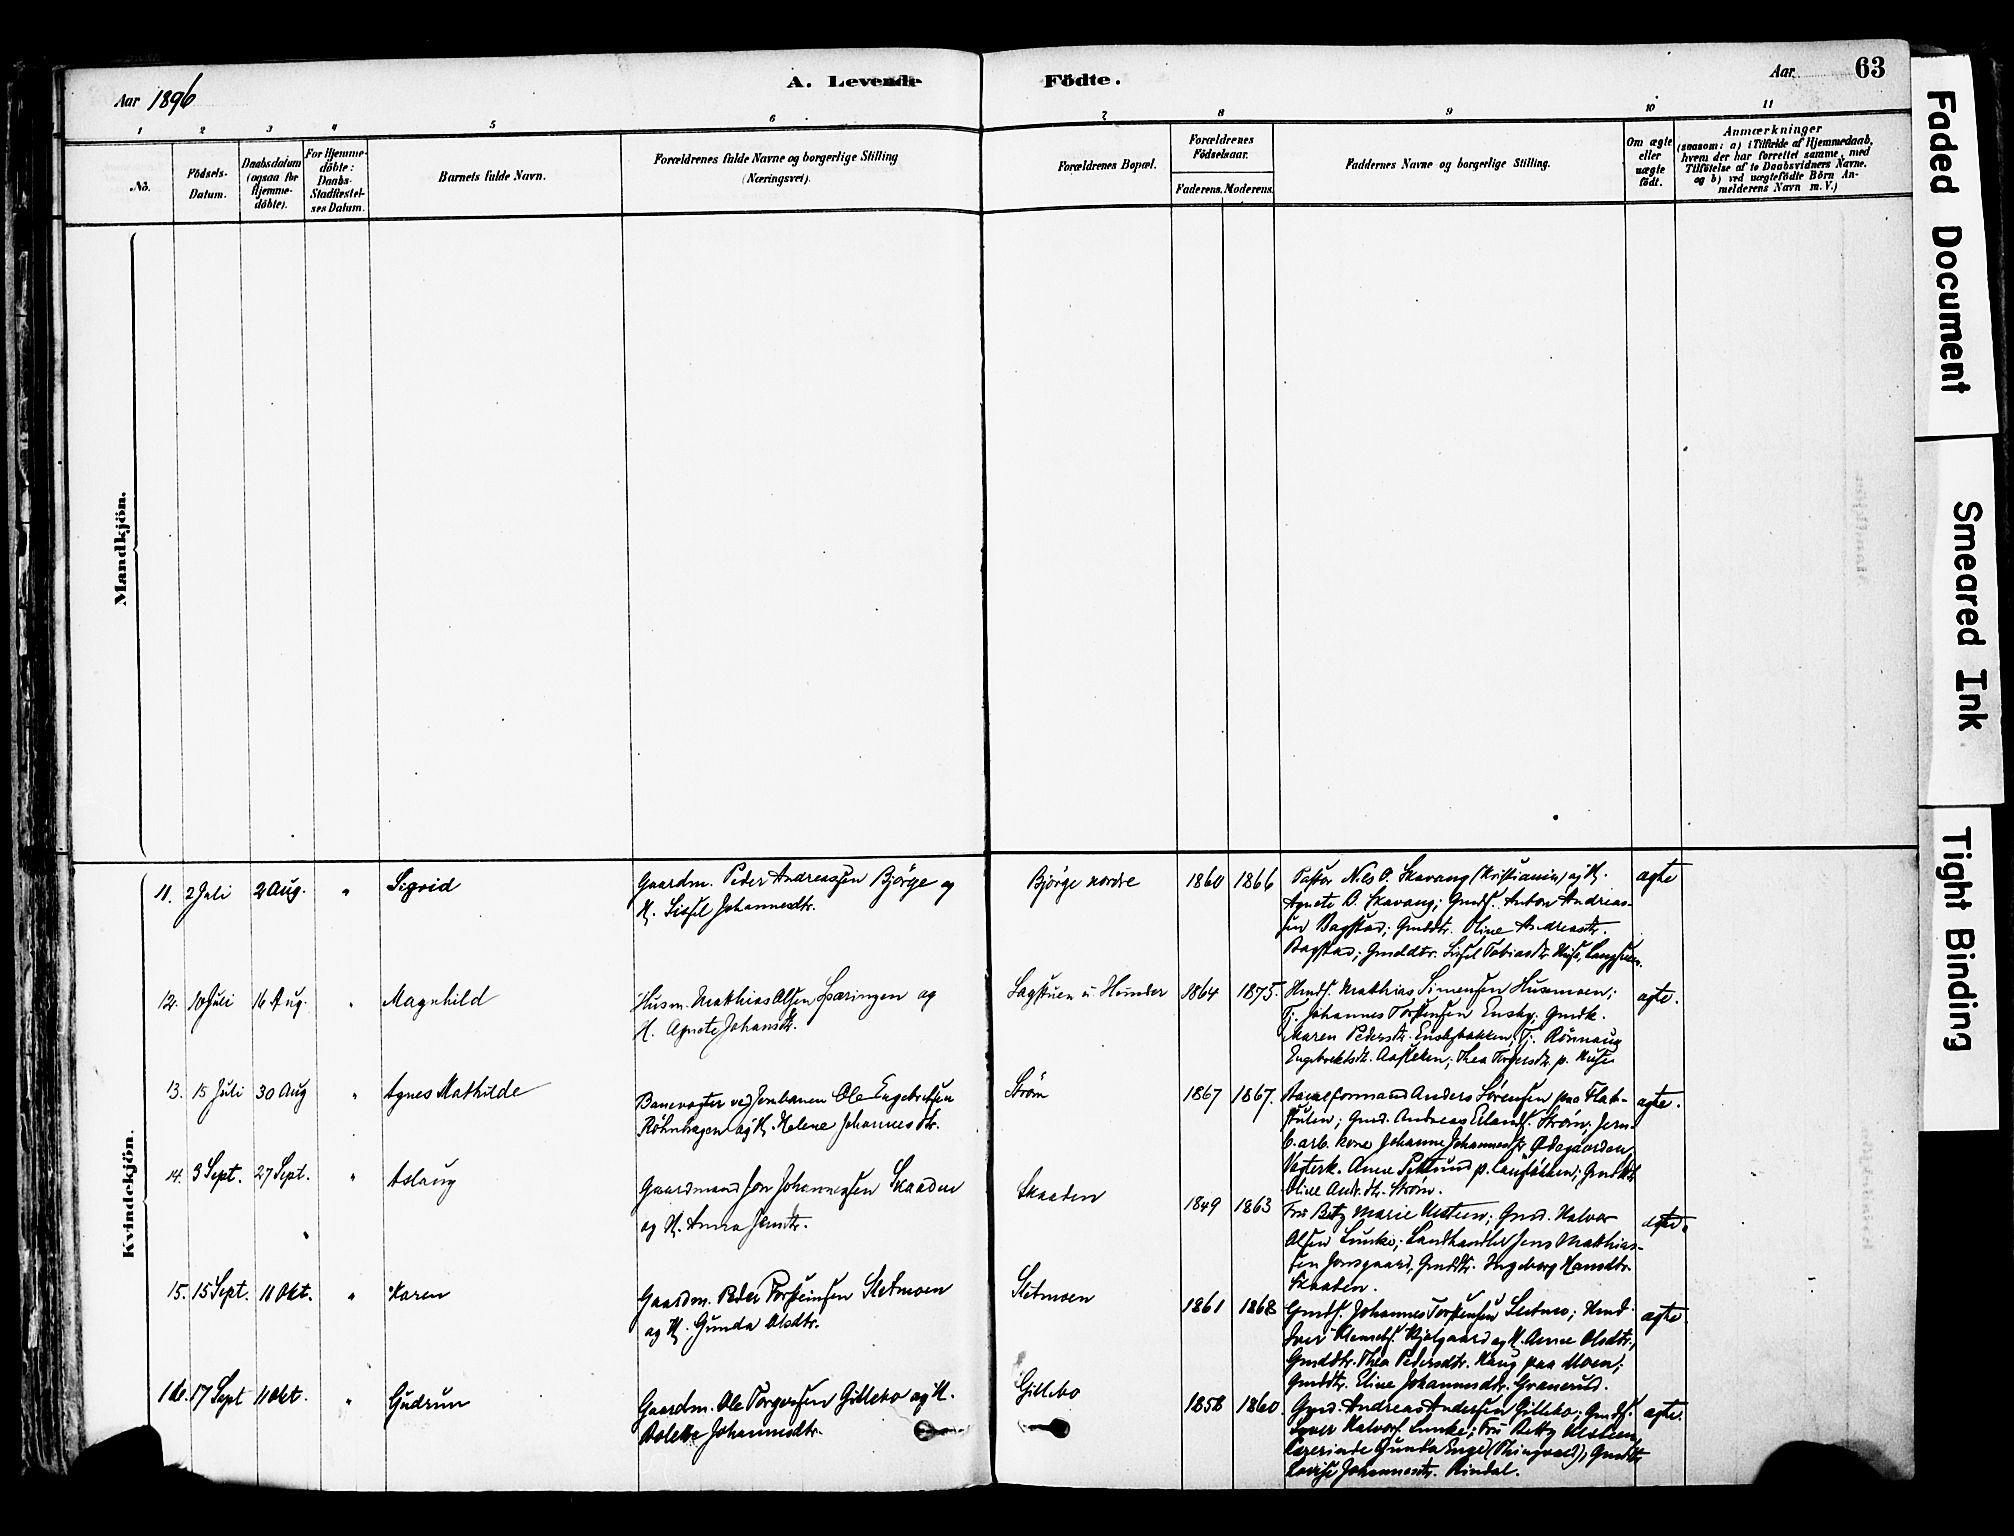 Aar 1896
A. Levende Födte.
Aar 63
1 2 3 4 5 6 7 8 9 10 11
No.
Födsels-
Datum.
Daabsdatum
(ogsaa for
Hjemme-
döbte).
For Hjemme-
döbte:
Daabs-
Stadfæstel-
ses Datum.
Barnets fulde Navn.
Forældrenes fulde Navne og borgerlige Stilling
(Næringsvei).
Forældrenes Bopæl.
Forældrenes
Födselsaar.
Faderens. Moderens.
Faddernes Navne og borgerlige Stilling.
Om ægte
eller
uægte
födt.
Anmærkninger
(saasom: a) i Tilfælde af Hjemmedaab,
hvem der har forrettet samme, med
Tilföielse af to Daabsvidners Navne.
og b) ved uægtefödte Börn An-
melderens Navn m. V.)
Mandkjön.
Kvindekjön.
11. 2 Juli 2 Aug. " Sigrid
Gaardm. Peder Andreassen Bjørge og
K. Sissel Johannesdtr.
Bjørge nordre
1860 1866
Pastor Nils P. Skavang (Kristiania) og K.
Agnete B. Skavang; Gmds. Anton Andreas-
sen Bagstad; Gmddtr. Oline Andreasdtr.
Bagstad; Gmddtr. Sissel Tobiasdtr.
ægte
12. 10 Juli 16 Aug. " Magnhild
Husm. Mathias Olsen Sparingen og
K. Agnete Johansdtr.
Lagstuen u Hunder
1864 1875.
Hmds. Mathias Simensen Husmoen;
Tj. Johannes Torstensen Ensby; Gmdk.
Maren Pedersdtr. Ensbybakken; Tj. Rønnaug
Engebretsdt. Thea
ægte.
13. 15 Juli 30 Aug " Agnes Mathilde
Banevogter ved Jernbanen Ole Engebretsen
Röhnhagen og K. Helene Johannesdtr.
Strøm
1867 1867.
Baneformand Anders Sørensen paa
Gmd. Andreas Erlands. Strøm; Jern-
b. arb. kone Johanne Johannesdtr Ødegaarden,
Vogterk. Anne
Oline And. dtr. Strøm.
ægte.
14. 3 Sept. 27 Sept. " Aslaug
Gaardmand Jon Johannessen Skaaden
og K. Anna Jensdtr.
Skaaden
1849 1863
Fru Betzy Marie Alsteen; Gmd. Halvor
Olsen Lunke; Landhandler Jens Mathias-
sen Jonsgaard, Gmddtr. Ingeborg Hansdtr.
Skaaden.
ægte.
15. 15 Sept. 11 Okt. " Karen
Gaardm. Peder Torsteinsen Sletmoen
og K. Gunda Olsdtr.
Sletmoen
1861 1868
Gmds. Johannes Torstensen Sletmo; Hmd
Iver Klemets. Kjelgaard og K. Anne Olsdtr,
Gmddtr. Thea Pedersdtr. Haug paa Moen;
Gmddtr. Eline Johannesdtr. Granerud.
ægte
16. 17 Sept 11 Okt. " Gudrun
Gaardm. Ole Torgersen Gillebo og K.
Bolette Johannesdtr.
Gillebo
1858 1860.
Gmd. Andreas Andersen Gillebo; Gmds.
Syver Halvors. Lunke; Fru Betty Alsteen,
Lærerinde Gunda Enge (Thingvold); Gmddtr
Lovise Johannesdtr. Rindal.
ægte.
Faded Document
Smeared Ink
Tight Binding